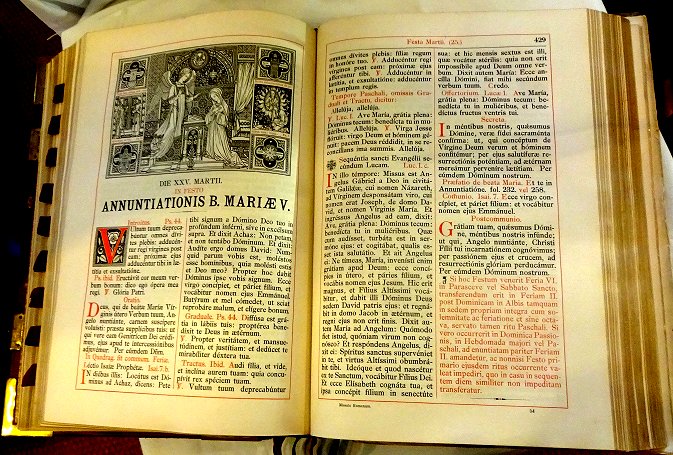 DIE XXV. MARTII.
IN FESTO
ANNUNTIATIONIS B. MARIÆ V.
Introitus. Ps. 44.
Vultum tuum depreca-
búntur omnes dívites
plebis: adducén-
tur regi vírgines post
eam: próximæ ejus
adducéntur tibi in læ-
títia et exsultatióne.
Ps. ibid. Eructávit cor meum ver-
bum bonum: dico ego ópera mea
regi. ℣. Glória Patri.
Oratio.
Deus, qui de beátæ Maríæ Vír-
ginis útero Verbum tuum, An-
gelo nuntiánte, carnem suscípere
voluísti: præsta supplícibus tuis; ut
qui vere eam Genitrícem Dei crédi-
mus, ejus apud te intercessiónibus
adjuvémur. Per eúmdem Dóm.
In Quadrag. fit commem. Feriæ.
Léctio Isaíæ Prophétæ. Isai. 7. b.
In diébus illis: Locútus est Dó-
minus ad Achaz, dicens: Pete
tibi signum a Dómino Deo tuo in
profúndum inférni, sive in excélsum
supra. Et dixit Achaz: Non petam,
et non tentábo Dóminum. Et dixit:
Audíte ergo domus David: Num-
quid parum vobis est, moléstos
esse homínibus, quia molésti estis
et Deo meo? Propter hoc dabit
Dóminus ipse vobis signum. Ecce
virgo concípiet, et páriet fílium, et
vocábitur nomen ejus Emmánuel.
Butýrum et mel cómedet, ut sciat
reprobáre malum, et elígere bonum.
Graduale. Ps. 44. Diffúsa est grá-
tia in lábiis tuis: proptérea bene-
díxit te Deus in ætérnum.
℣. Propter veritátem, et mansue-
túdinem, et justítiam: et dedúcet te
mirabíliter déxtera tua.
Tractus. Ibid. Audi fília, et vide,
et inclína aurem tuam: quia concu-
pívit rex spéciem tuam.
℣. Vultum tuum deprecabúntur
Festa Martii. (25.)
429
omnes dívites plebis: fíliæ regum
in honóre tuo. ℣. Adducéntur regi
vírgines post eam: próximæ ejus
afferéntur tibi. ℣. Adducéntur in
lætítia, et exsultatióne: adducéntur
in templum regis.
Tempore Paschali, omissis Gra-
duali et Tractu, dicitur:
Allelúja, allelúja.
℣. Luc. 1. Ave María, grátia plena:
Dóminus tecum: benedícta tu in mu-
liéribus. Allelúja. ℣. Virga Jesse
flóruit: virgo Deum et hóminem gé-
nuit: pacem Deus réddidit, in se re-
concílians ima summis. Allelúja.
Sequéntia sancti Evangélii se-
cúndum Lucam. Luc. 1. c.
In illo témpore: Missus est An-
gelus Gábriel a Deo in civitá-
tem Galilǽæ, cui nomen Názareth,
ad Vírginem desponsátam viro, cui
nomen erat Joseph, de domo Da-
vid, et nomen Vírginis María. Et
ingréssus Angelus ad eam, dixit:
Ave, grátia plena: Dóminus tecum:
benedícta tu in muliéribus. Quæ
cum audísset, turbáta est in ser-
móne ejus: et cogitábat, qualis es-
set ista salutátio. Et ait Angelus
ei: Ne tímeas, María, invenísti enim
grátiam apud Deum: ecce concí-
pies in útero, et páries fílium, et
vocábis nomen ejus Jesum. Hic erit
magnus, et Fílius Altíssimi vocá-
bitur, et dabit illi Dóminus Deus
sedem David patris ejus: et regná-
bit in domo Jacob in ætérnum, et
regni ejus non erit finis. Dixit au-
tem María ad Angelum: Quómodo
fiet istud, quóniam virum non cog-
nósco? Et respóndens Angelus, di-
xit ei: Spíritus sanctus supervéniet
in te, et virtus Altíssimi obumbrá-
bit tibi. Ideóque et quod nascétur
ex te Sanctum, vocábitur Fílius Dei.
Et ecce Elísabeth cognáta tua, et
ipsa concépit fílium in senectúte
sua: et hic mensis sextus est illi,
quæ vocátur stérilis: quia non erit
impossíbile apud Deum omne ver-
bum. Dixit autem María: Ecce an-
cílla Dómini, fiat mihi secúndum
verbum tuum. Credo.
Offertorium. Lucæ 1. Ave María,
grátia plena: Dóminus tecum: be-
nedícta tu in muliéribus, et bene-
díctus fructus ventris tui.
Secreta.
In méntibus nostris, quǽsumus
Dómine, veræ fídei sacraménta
confírma: ut, qui concéptum de
Vírgine Deum verum et hóminem
confitémur; per ejus salutíferæ re-
surrectiónis poténtiam, ad ætérnam
mereámur perveníre lætítiam. Per
eúmdem Dóminum nostrum.
Præfatio de beata Maria. Et te in
Annuntiatióne. fol. 232. vel 258.
Communio. Isai. 7. Ecce virgo con-
cípiet, et páriet fílium: et vocábitur
nomen ejus Emmánuel.
Postcommunio.
Grátiam tuam, quǽsumus Dómi-
ne, méntibus nostris infúnde;
ut qui, Angelo nuntiánte, Christi
Fílii tui incarnatiónem cognóvimus;
per passiónem ejus et crucem, ad
resurrectiónis glóriam perducámur.
Per eúmdem Dóminum nostrum.
¶ Si hoc Festum venerit Feria VI.
in Parasceve vel Sabbato Sancto,
transferendum erit in Feriam II.
post Dominicam in Albis tamquam
in sedem propriam integra cum so-
lemnitate ac feriatione et sine octa-
va, servato tamen ritu Paschali. Si
vero occurrerit in Dominica Passio-
nis, in Hebdomada majori vel Pa-
schali, ad enuntiatam pariter Feriam
II. amandetur, ac nonnisi Festo pri-
mario ejusdem ritus occurrente va-
leat impediri, quo in casu in sequen-
tem diem similiter non impeditam
transferatur.
Missale Romanum.
14